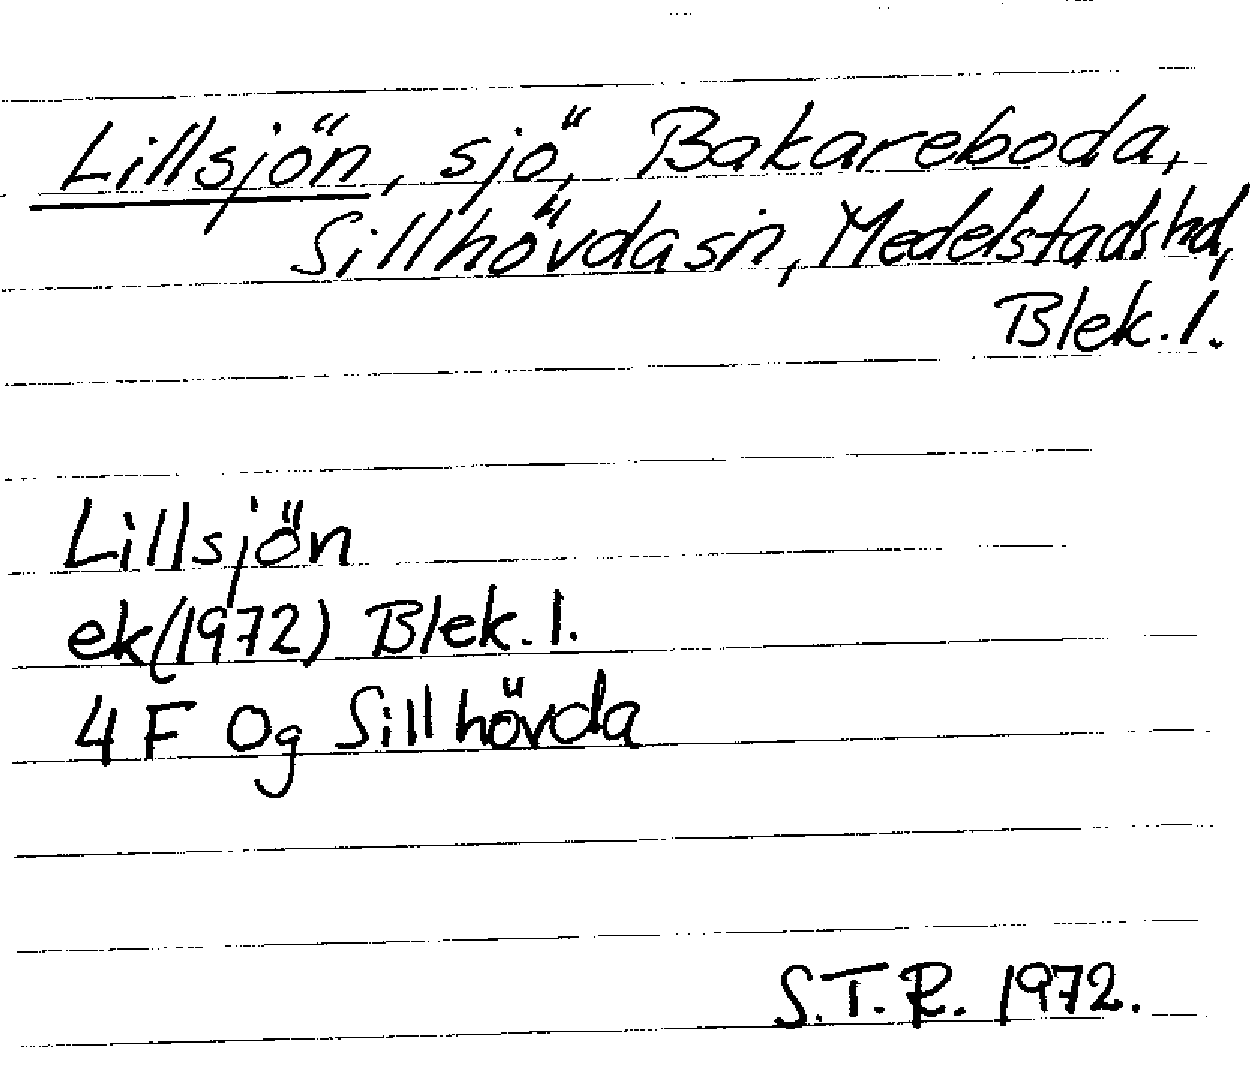 Lillsjön, sjö, Bakareboda,
Sillhövda sn, Medelstads hd,
Blek. l.
Lillsjön
ek (1972) Blek. l.
4 F Og Sillhövda
S.T.R. 1972.